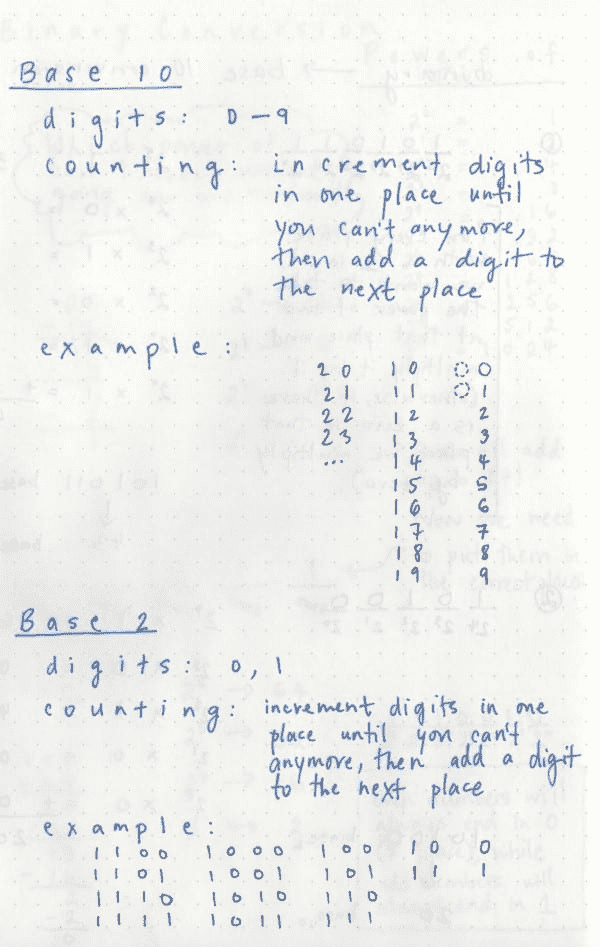 Base 10
digits: 0-9
counting: increment digits
in one place until
you can't anymore,
then add a digit to
the next place
example:
20 10 00
21 11 01
22 12 2
23 13 3
... 14 4
15 5
16 6
17 7
18 8
19 9
Base 2
digits: 0, 1
counting: increment digits in one
place until you can't
anymore, then add a digit
to the next place
example:
1100 1000 100 10 0
1101 1001 101 11 1
1110 1010 110
1111 1011 111